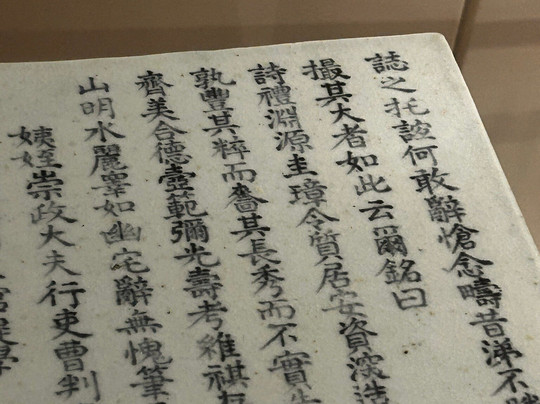 誌之托諺何敢辭愴念疇昔涕不
撮其大者如此云爾銘曰
詩禮淵源圭璋令質居安資深造
孰豊其粹而嗇其長秀而不實生
齊美合德壺範彌光壽考維祺
山明水麗睾如幽宅辭無愧筆
姨姪崇政大夫行吏曹判